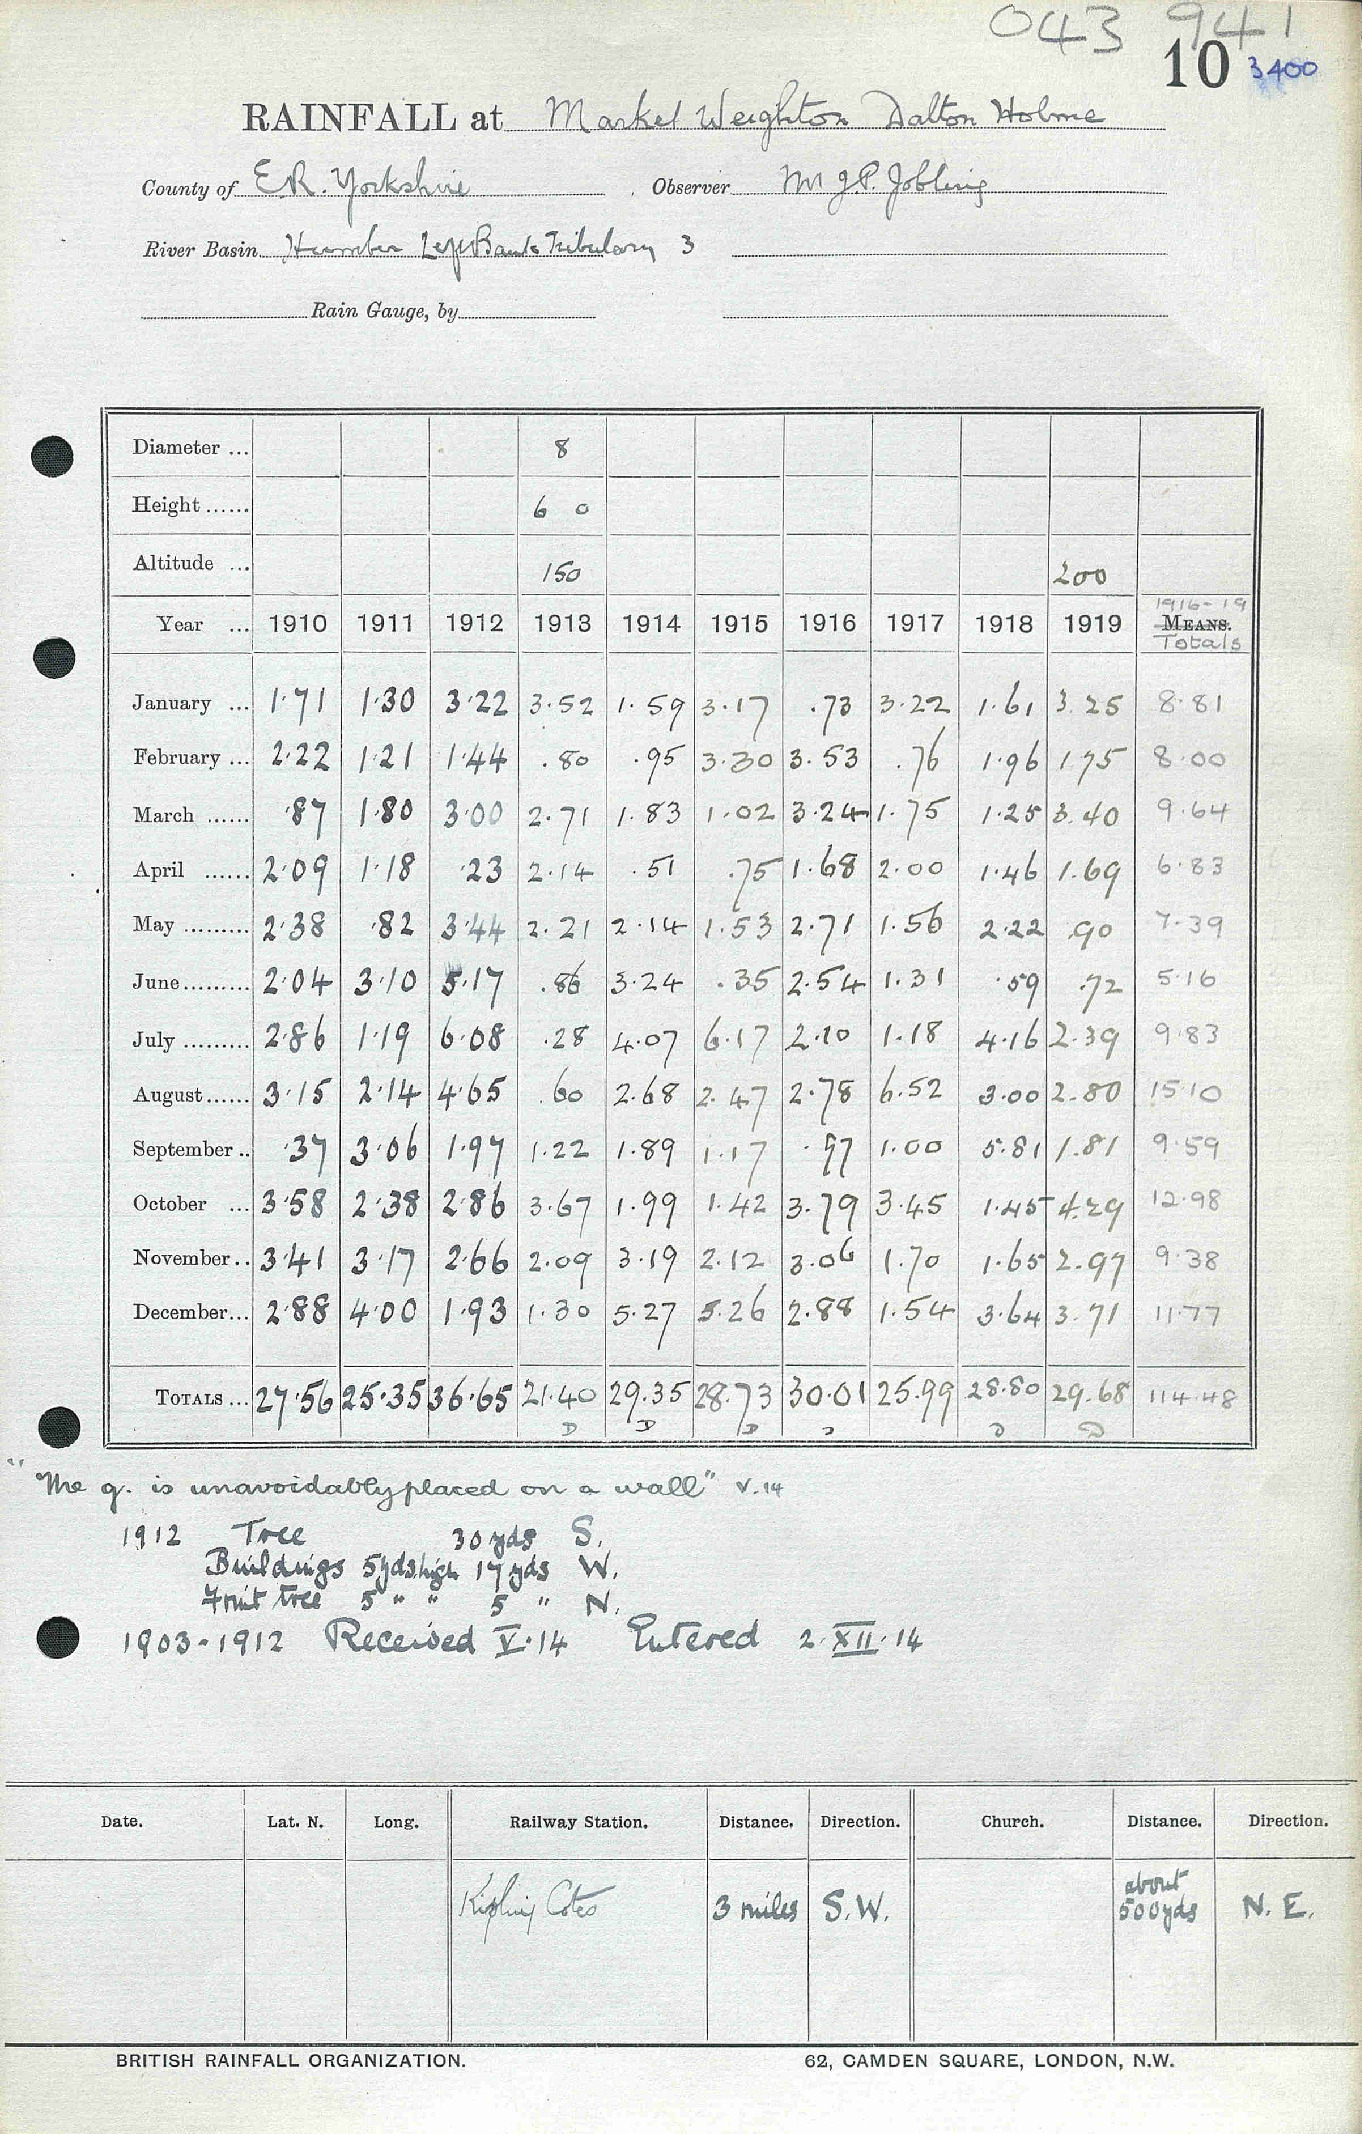 043 941
10 3400
RAINFALL at Market Weighton Dalton Holme
County of E.R. Yorkshire Observer Mr J.P. Jobling
River Basin Humber Left Bank Tributary 3
Rain Gauge, by
Diameter ... 8
Height ...... 6 0
Altitude ... 150 200
Year ... 1910 1911 1912 1913 1914 1915 1916 1917 1918 1919 1916-19 MEANS. Totals
January ... 1.71 1.30 3.22 3.52 1.59 3.17 .73 3.22 1.61 3.25 8.81
February ... 2.22 1.21 1.44 .80 .95 3.30 3.53 .76 1.96 1.75 8.00
March ...... .87 1.80 3.00 2.71 1.83 1.02 3.24 1.75 1.25 3.40 9.64
April ...... 2.09 1.18 .23 2.14 .51 .75 1.68 2.00 1.46 1.69 6.83
May ......... 2.38 .82 3.44 2.21 2.14 1.53 2.71 1.56 2.22 .90 7.39
June ......... 2.04 3.10 5.17 .86 3.24 .35 2.54 1.31 .59 .72 5.16
July ......... 2.86 1.19 6.08 .28 4.07 6.17 2.10 1.18 4.16 2.39 9.83
August ...... 3.15 2.14 4.65 .60 2.68 2.47 2.78 6.52 3.00 2.80 15.10
September .. .37 3.06 1.97 1.22 1.89 1.17 .97 1.00 5.81 1.81 9.59
October ... 3.58 2.38 2.86 3.67 1.99 1.42 3.79 3.45 1.45 4.29 12.98
November .. 3.41 3.17 2.66 2.09 3.19 2.12 3.06 1.70 1.65 2.97 9.38
December ... 2.88 4.00 1.93 1.30 5.27 5.26 2.88 1.54 3.64 3.71 11.77
TOTALS ... 27.56 25.35 36.65 21.40 29.35 28.73 30.01 25.99 28.80 29.68 114.48
D D D D D D
"The g. is unavoidably placed on a wall" V.14
1912 Tree 30 yds S.
Buildings 5yds high 17 yds W.
Fruit tree 5 " " 5 " N.
1903-1912 Received V.14 Entered 2.XII.14
Date. Lat. N. Long. Railway Station. Distance. Direction. Church. Distance. Direction.
Kipling Cotes 3 miles S.W. about 500yds N.E.
BRITISH RAINFALL ORGANIZATION. 62, CAMDEN SQUARE, LONDON, N.W.